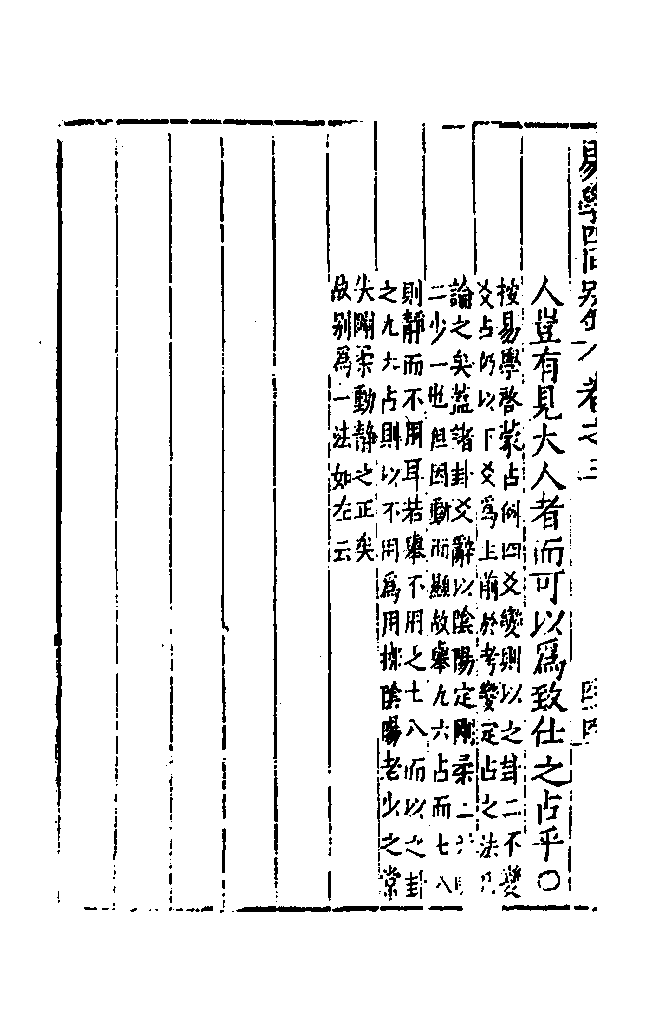 易學四同別錄 卷之三
人豈有見大人者而可以爲致仕之占乎〇
按易學啓蒙占例四爻變則以之卦二不變
爻占仍以下爻爲上前於考變定占之法
論之矣蓋諸卦爻辭以陰陽定剛柔二
二少一也但因動而顯故舉九六占而七八
則靜而不用耳若舉不用之七八而以之卦
之九六占則以不用爲用揲陰陽老少之常
失剛柔動靜之正矣
故别爲一法如左云